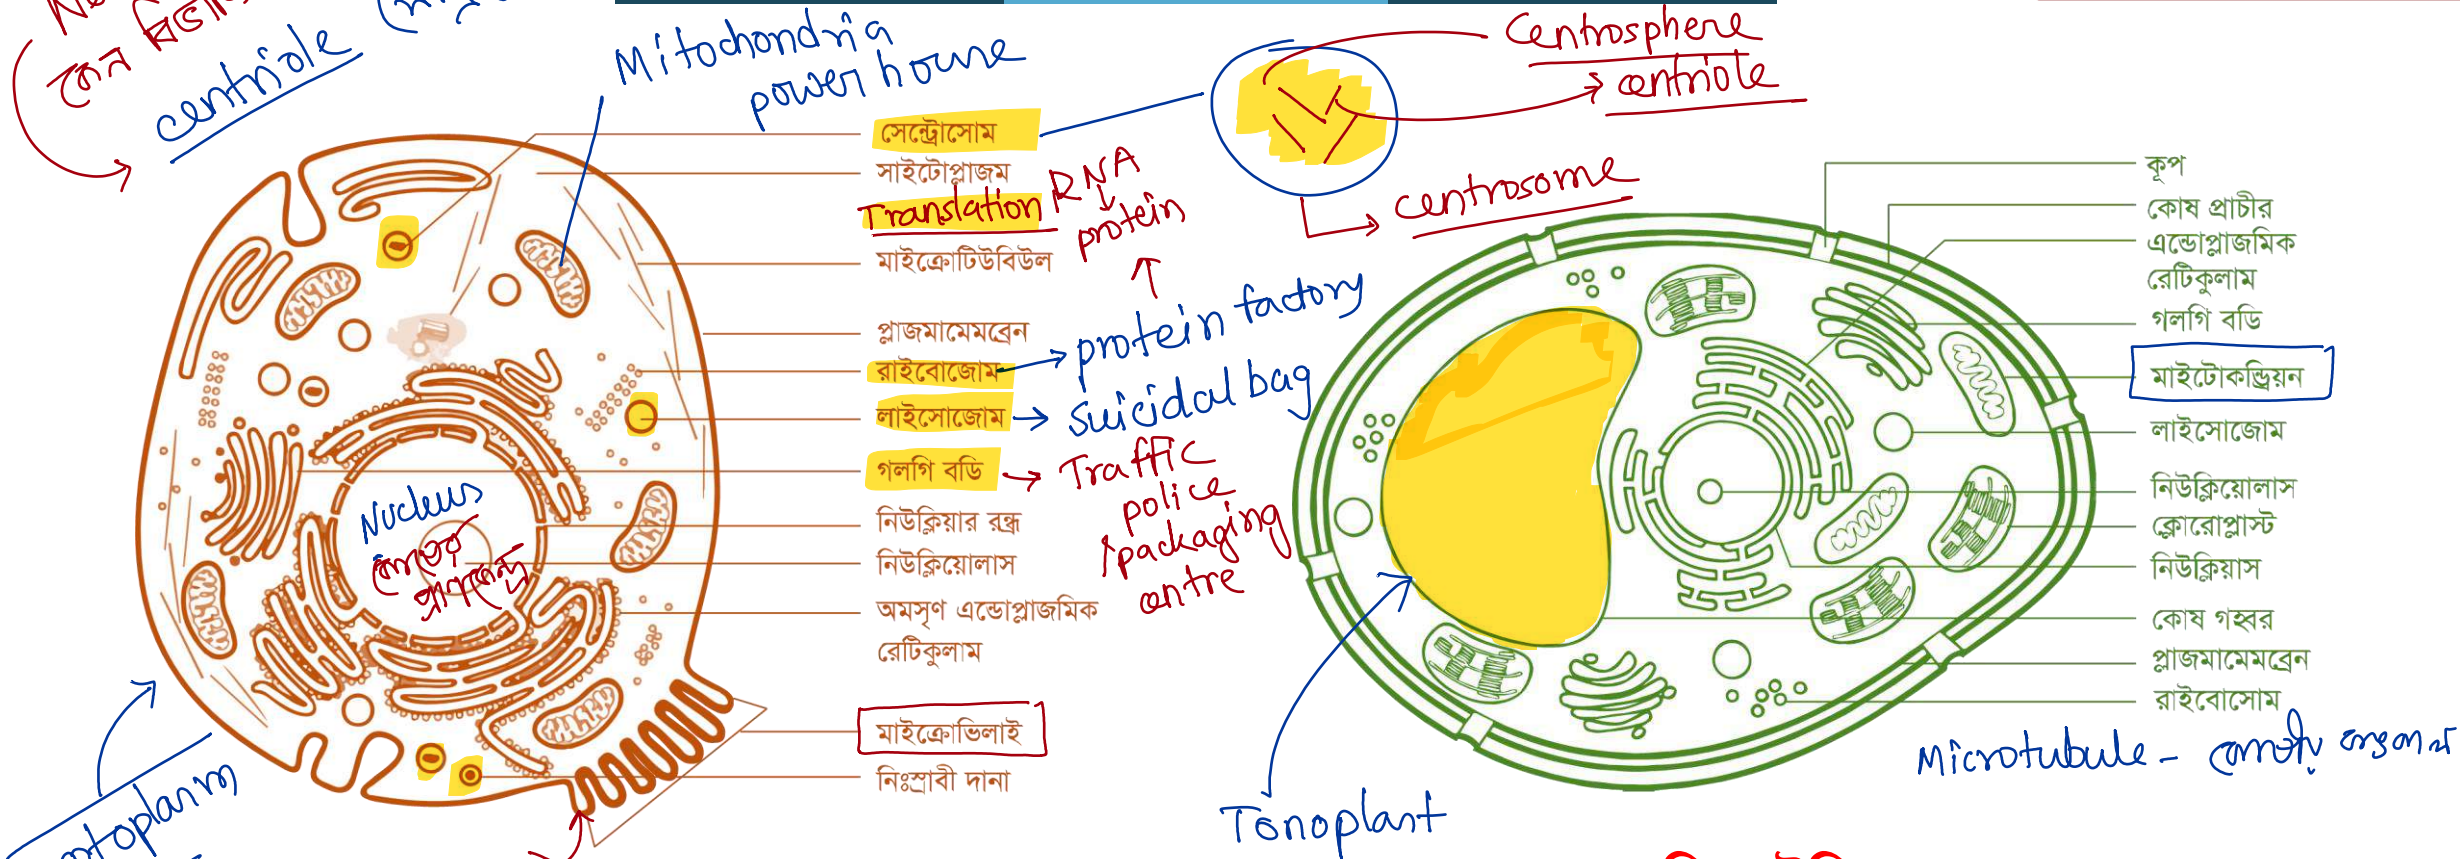 কেন
centriole
Mitochondria
power house
Centrosphere
centriole
centrosome
সেন্ট্রোসোম
সাইটোপ্লাজম
Translation
RNA
protein
মাইক্রোটিউবিউল
প্লাজমামেমব্রেন
রাইবোজোম
protein factory
লাইসোজোম
suicidal bag
গলগি বডি
Traffic
police
/packaging
centre
নিউক্লিয়ার রন্ধ্র
নিউক্লিয়োলাস
অমসৃণ এন্ডোপ্লাজমিক
রেটিকুলাম
মাইক্রোভিলাই
নিঃস্রাবী দানা
Nucleus
কোষের
প্রাণকেন্দ্র
কূপ
কোষ প্রাচীর
এন্ডোপ্লাজমিক
রেটিকুলাম
গলগি বডি
মাইটোকন্ড্রিয়ন
লাইসোজোম
নিউক্লিয়োলাস
ক্লোরোপ্লাস্ট
নিউক্লিয়াস
কোষ গহ্বর
প্লাজমামেমব্রেন
রাইবোসোম
Microtubule - কোষীয় কঙ্কাল
Tonoplast